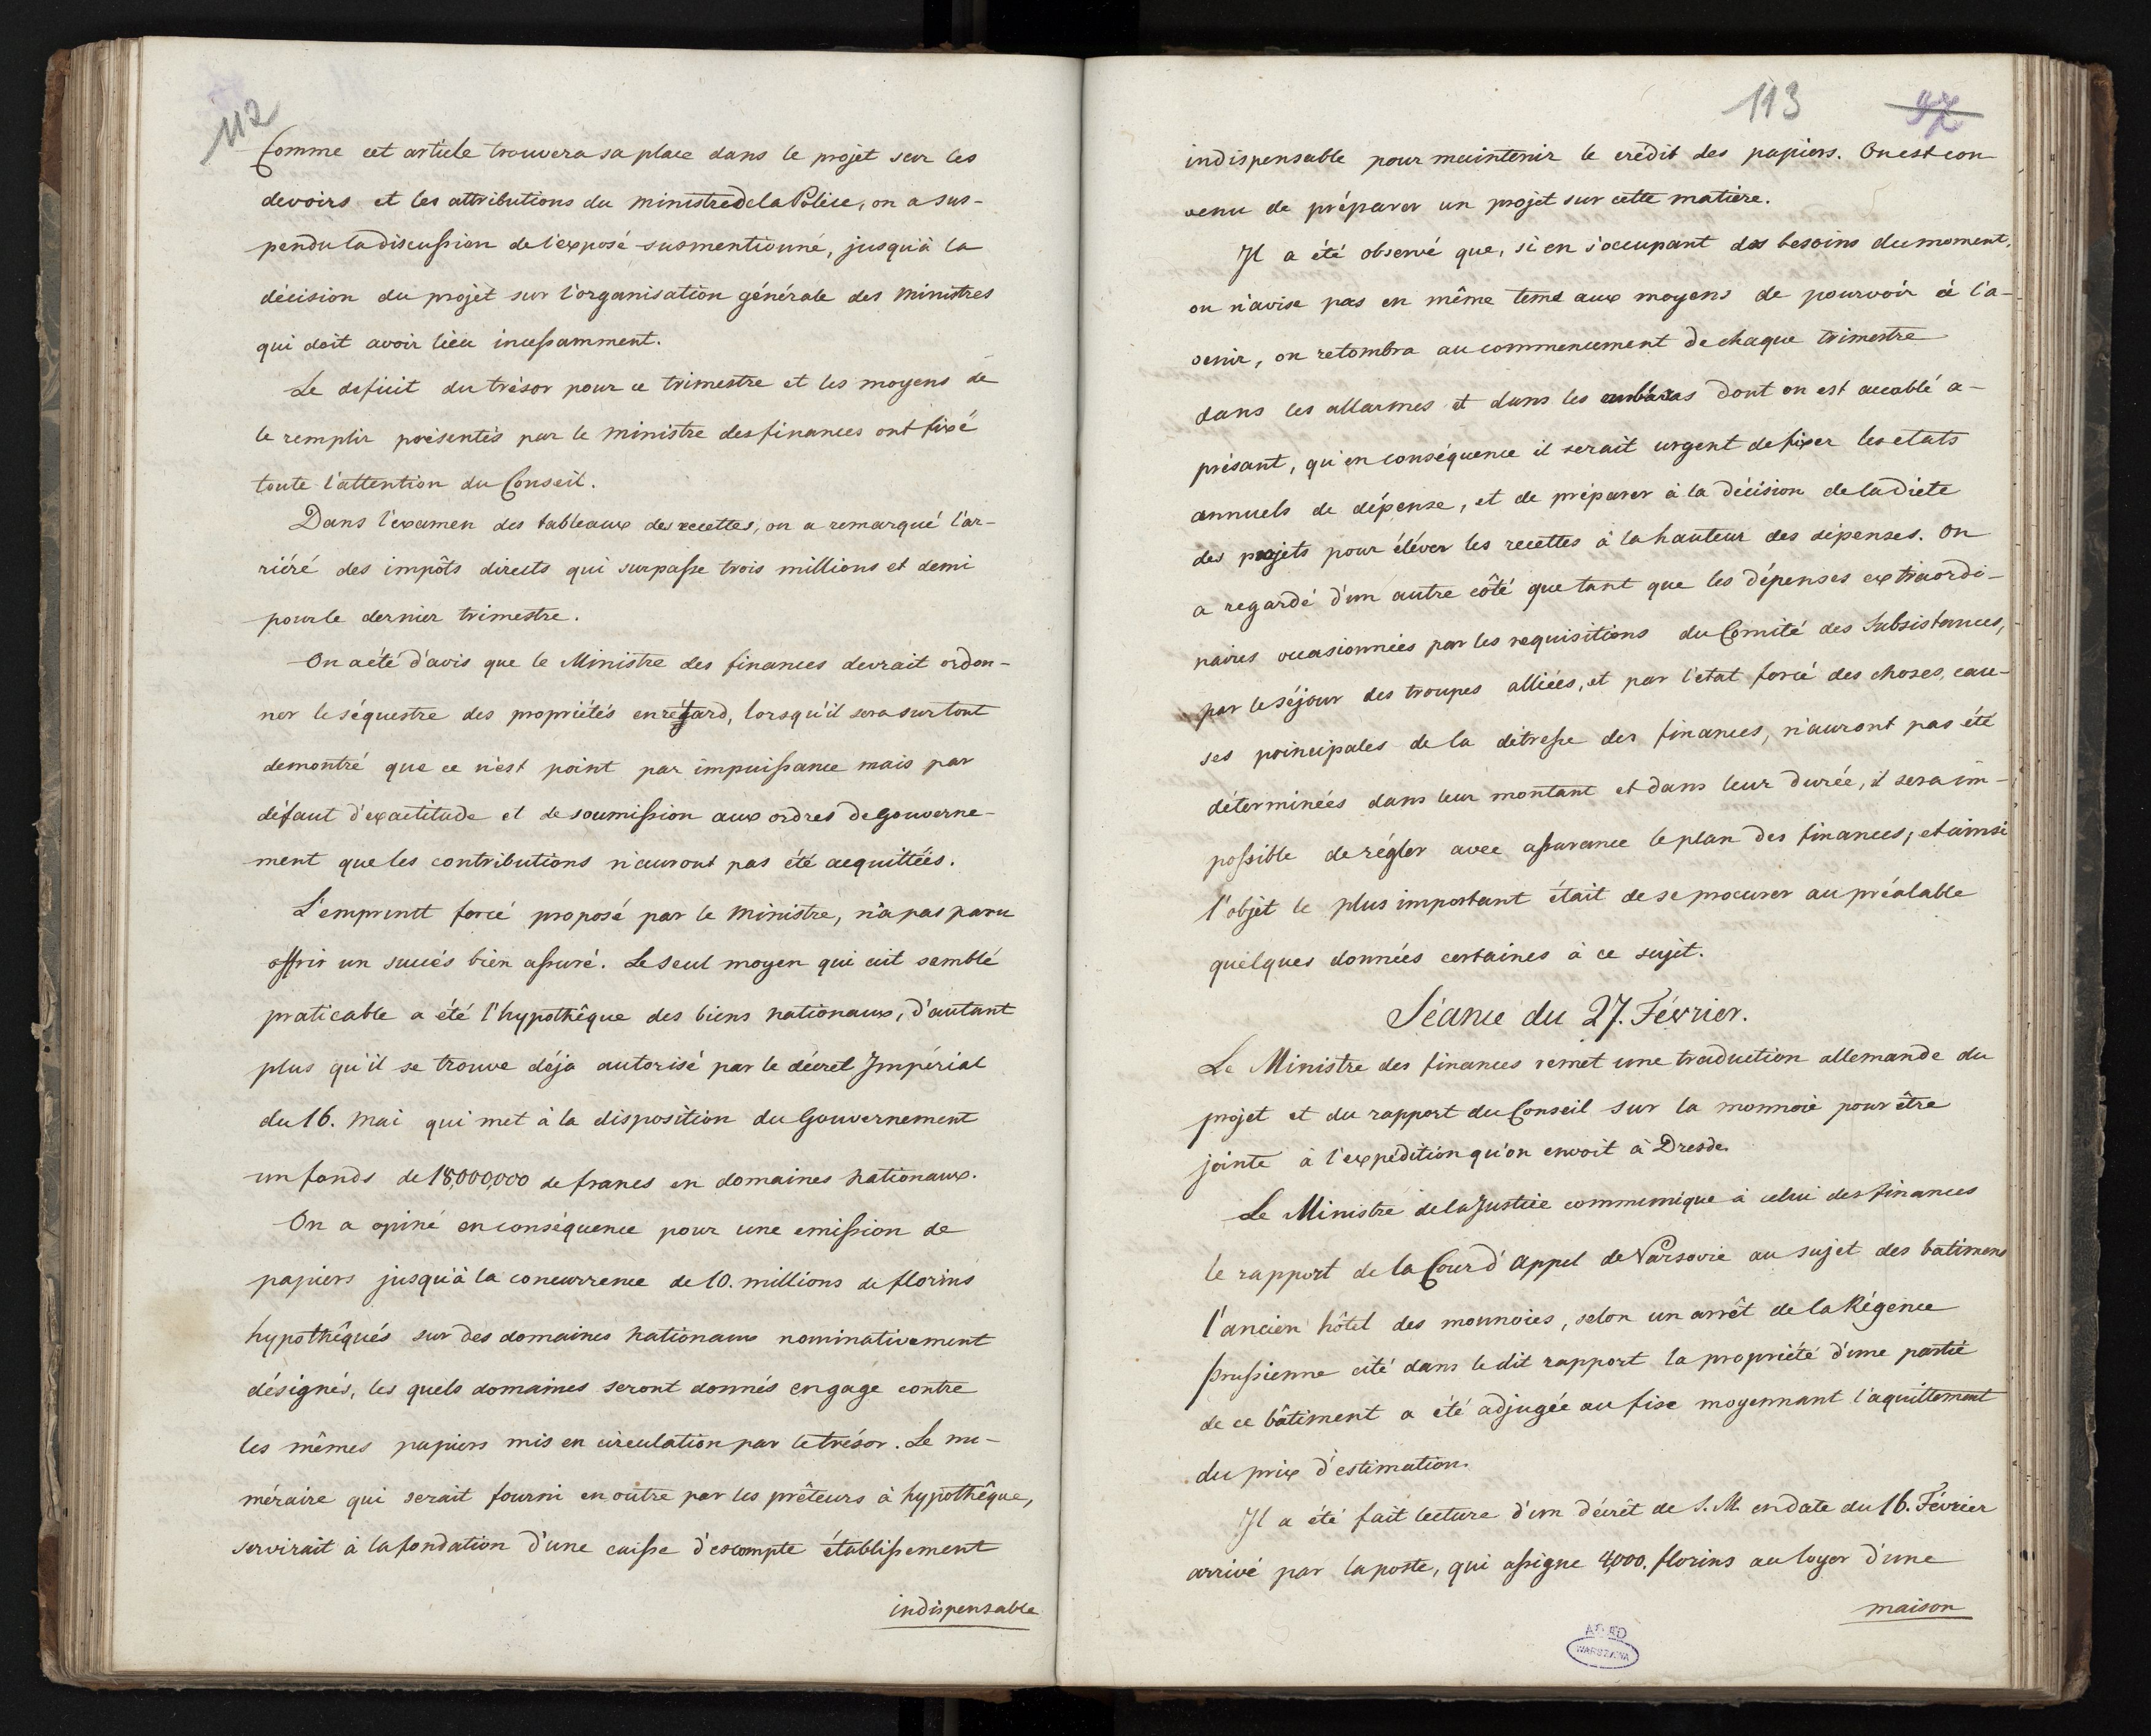 112
Comme cet article trouvera sa place dans le projet sur les
devoirs et les attributions du ministre de la Police, on a sus-
pendu la discussion de l'exposé susmentionné, jusqu'à la
décision du projet sur l'organisation générale des ministres
qui doit avoir lieu incessamment.
Le deficit du trésor pour ce trimestre et les moyens de
le remplir présentés par le ministre des finances ont fixé
toute l'attention du Conseil.
Dans l'examen des tableaux des recettes, on a remarqué l'ar-
riéré des impôts directs qui surpasse trois millions et demi
pour le dernier trimestre.
On a été d'avis que le Ministre des finances devrait ordon-
ner le séquestre des propriétés en régard, lorsqu'il sera surtout
demontré que ce n'est point par impuissance mais par
défaut d'exactitude et de soumission aux ordres de Gouverne-
ment que les contributions n'auront pas été acquittées.
L'emprintt forcé proposé par le ministre, n'a pas paru
offrir un succés bien assuré. Le seul moyen qui eut semblé
praticable a été l'hypothêque des biens nationaux, d'autant
plus qu'il se trouve déja autorisé par le décret Impérial
du 16. mai qui met à la disposition du Gouvernement
un fonds de 18,000,000 de francs en domaines nationaux.
On a opiné en conséquence pour une emission de
papiers jusqu'à la concurrence de 10. millions de florins
hypothêqués sur des domaines nationaux nominativement
désignés, les quels domaines seront donnés en gage contre
les mêmes papiers mis en circulation par le trésor. Le nu-
méraire qui serait fourni en outre par les prêteurs à hypothêque,
servirait à la fondation d'une caisse d'escompte établissement
indispensable
113 97
indispensable pour maintenir le crédit des papiers. On est con
venu de préparer un projet sur cette matière.
Il a été observé que, si en s'occupant des besoins du moment,
on n'avise pas en même tems aux moyens de pourvoir à l'a-
venir, on retombra au commencement de chaque trimestre
dans les allarmes et dans les embaras dont on est accablé a-
présant, qu'en conséquence il serait urgent de fixer les etats
annuels de dépense, et de préparer à la décision de la diete
des projets pour éléver les recettes à la hauteur des dépenses. On
a regardé d'un autre côté que tant que les dépenses extraordi-
naires occasionnées par les requisitions du Comité des Subsistances,
par le séjour des troupes alliées, et par l'état forcé des choses, cau-
ses principales de la détresse des finances, n'auront pas été
déterminées dans leur montant et dans leur durée, il sera im-
possible de régler avec assurance le plan des finances, et ainsi
l'objet le plus important était de se procurer au préalable
quelques données certaines à ce sujet.
Séance du 27. Février.
Le Ministre des finances remet une traduction allemande du
projet et du rapport du Conseil sur la monnoie pour être
jointe à l'expédition qu'on envoit à Dresde.
Le Ministre de la Justice communique à celui des finances
le rapport de la Cour d'Appel de Varsovie au sujet des batimens
l'ancien hôtel des monnoies, selon un arrêt de la Régence
prussienne cité dans le dit rapport la propriété d'une partie
de ce bâtiment a été adjugée au fisc moyennant l'aquittement
du prix d'estimation.
Il a été fait lecture d'un décrêt de S. M. en date du 16. Février
arrivé par la poste, qui assigne 4,000. florins au loyer d'une
maison
WARSZAWA